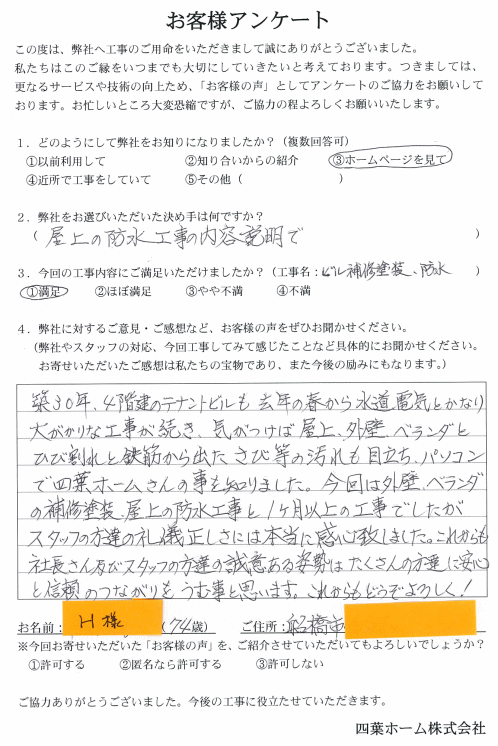 お客様アンケート
この度は、弊社へ工事のご用命をいただきまして誠にありがとうございました。
私たちはこのご縁をいつまでも大切にしていきたいと考えております。つきましては、
更なるサービスや技術の向上ため、「お客様の声」としてアンケートのご協力をお願いして
おります。お忙しいところ大変恐縮ですが、ご協力の程よろしくお願いいたします。
1．どのようにして弊社をお知りになりましたか？（複数回答可）
①以前利用して ②知り合いからの紹介 ③ホームページを見て
④近所で工事をしていて ⑤その他（ ）
2．弊社をお選びいただいた決め手は何ですか？
（ 屋上の防水工事の内容説明で ）
3．今回の工事内容にご満足いただけましたか？（工事名：ビル補修塗装、防水 ）
①満足 ②ほぼ満足 ③やや不満 ④不満
4．弊社に対するご意見・ご感想など、お客様の声をぜひお聞かせください。
（弊社やスタッフの対応、今回工事してみて感じたことなど具体的にお聞かせください。
お寄せいただいたご感想は私たちの宝物であり、また今後の励みにもなります。）
築30年、4階建のテナントビルも去年の春から水道電気とかなり
大がかりな工事が続き、気がつけば屋上、外壁、ベランダと
ひび割れと鉄筋から出たさび等の汚れも目立ち、パソコン
で四葉ホームさんの事を知りました。今回は外壁、ベランダ
の補修塗装、屋上の防水工事と1ヶ月以上の工事でしたが
スタッフの方達の礼儀正しさには本当に感心致しました。これからも
社長さん及びスタッフの方達の誠意ある姿勢はたくさんの方達に安心
と信頼のつながりをうむ事と思います。これからもどうぞよろしく！
お名前： H様 （74歳） ご住所：船橋市
※今回お寄せいただいた「お客様の声」を、ご紹介させていただいてもよろしいでしょうか？
①許可する ②匿名なら許可する ③許可しない
ご協力ありがとうございました。今後の工事に役立たせていただきます。
四葉ホーム株式会社